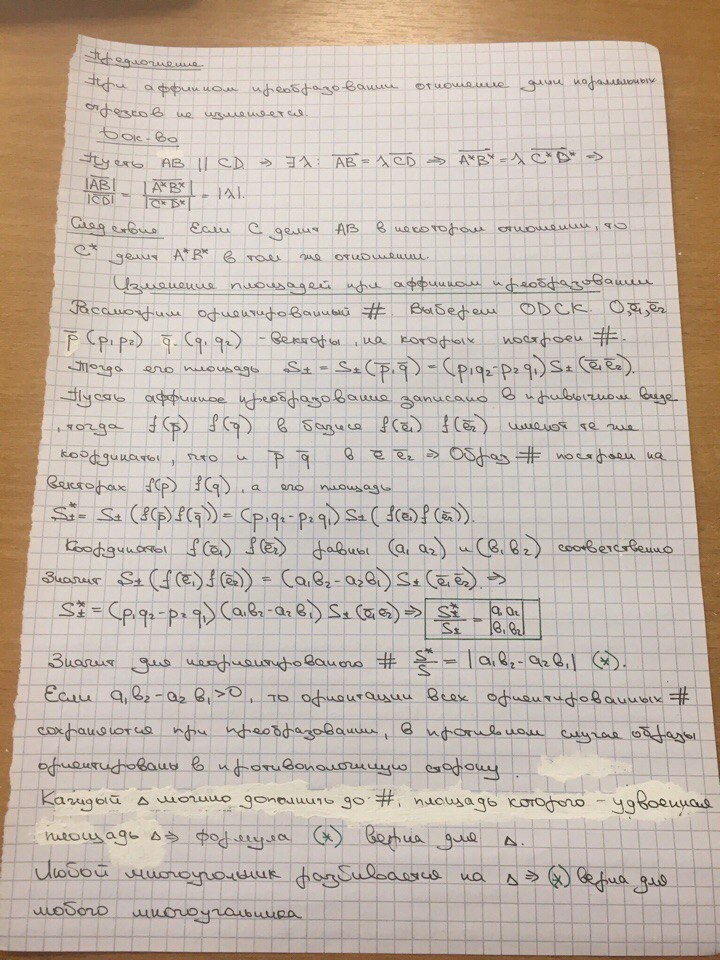 Предложение
При аффинном преобразовании отношение длин паралельных
отрезков не изменяется.
Док-во
Пусть AB || CD ⇒ ∃ λ: AB = λ CD ⇒ A*B* = λ C*D* ⇒
|AB| / |CD| = |A*B*| / |C*D*| = |λ|.
Следствие Если C делит AB в некотором отношении, то
C* делит A*B* в том же отношении.
Изменение площадей при аффинном преобразовании
Рассмотрим ориентированный #. Выберем ОДСК O, e̅₁, e̅₂
p̅ (p₁, p₂) q̅ (q₁, q₂) - векторы, на которых построен #.
Тогда его площадь S± = S± (p̅, q̅) = (p₁q₂-p₂q₁) S± (e̅₁ e̅₂).
Пусть аффинное преобразование записано в привычном виде
, тогда f(p̅) f(q̅) в базисе f(e̅₁) f(e̅₂) имеют те же
координаты, что и p̅ q̅ в e̅ e̅₂ ⇒ Образ # построен на
векторах f(p) f(q), а его площадь
S±* = S± (f(p̅) f(q̅)) = (p₁q₂-p₂q₁) S± (f(e̅₁) f(e̅₂)).
Координаты f(e̅₁) f(e̅₂) равны (a₁ a₂) и (b₁ b₂) соответственно
Значит S± (f(e̅₁) f(e̅₂)) = (a₁b₂-a₂b₁) S± (e̅₁ e̅₂). ⇒
S±* = (p₁q₂-p₂q₁) (a₁b₂-a₂b₁) S± (e̅₁ e̅₂) ⇒ S±* / S± = |a₁ a₂ b₁ b₂|
Значит для неориентированого # S* / S = |a₁b₂-a₂b₁| (*).
Если a₁b₂-a₂b₁>0, то ориентации всех ориентированных #
сохраняются при преобразовании, в противном случае образы
ориентированы в противоположную сторону.
Каждый Δ можно дополнить до #, площадь которого - удвоенная
площадь Δ ⇒ формула (*) верна для Δ.
Любой многоугольник разбивается на Δ ⇒ (*) верна для
любого многоугольника